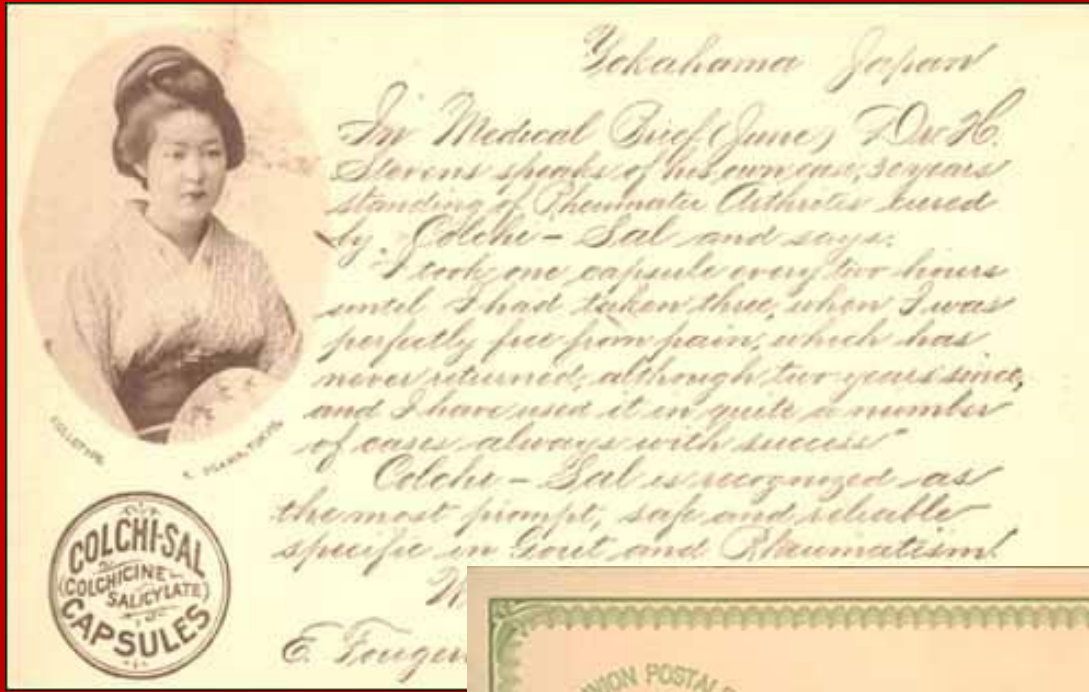 Yokahama Japan
In Medical Brief (June) Dr. H.
Stevens speaks of his own case, 30 years
standing of Rheumatic Arthritis cured
by Colchi-Sal and says:
"I took one capsule every two hours
until I had taken three, when I was
perfectly free from pain, which has
never returned, although two years since,
and I have used it in quite a number
of cases always with success"
Colchi-Sal is recognized as
the most prompt, safe and reliable
specific in Gout and Rheumatism.
E. Fouger
COLLOTYPE
K. OGAWA, TOKYO
COLCHI-SAL
(COLCHICINE
SALICYLATE)
CAPSULES
UNION POSTALE